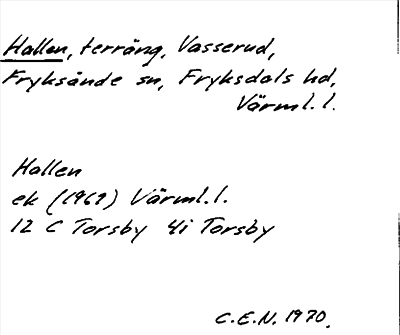 Hallen, terräng, Vasserud,
Fryksände sn, Fryksdals hd,
Värml. l.
Hallen
ek (1969) Värml. l.
12 C Torsby 4i Torsby
C.E.N. 1970.